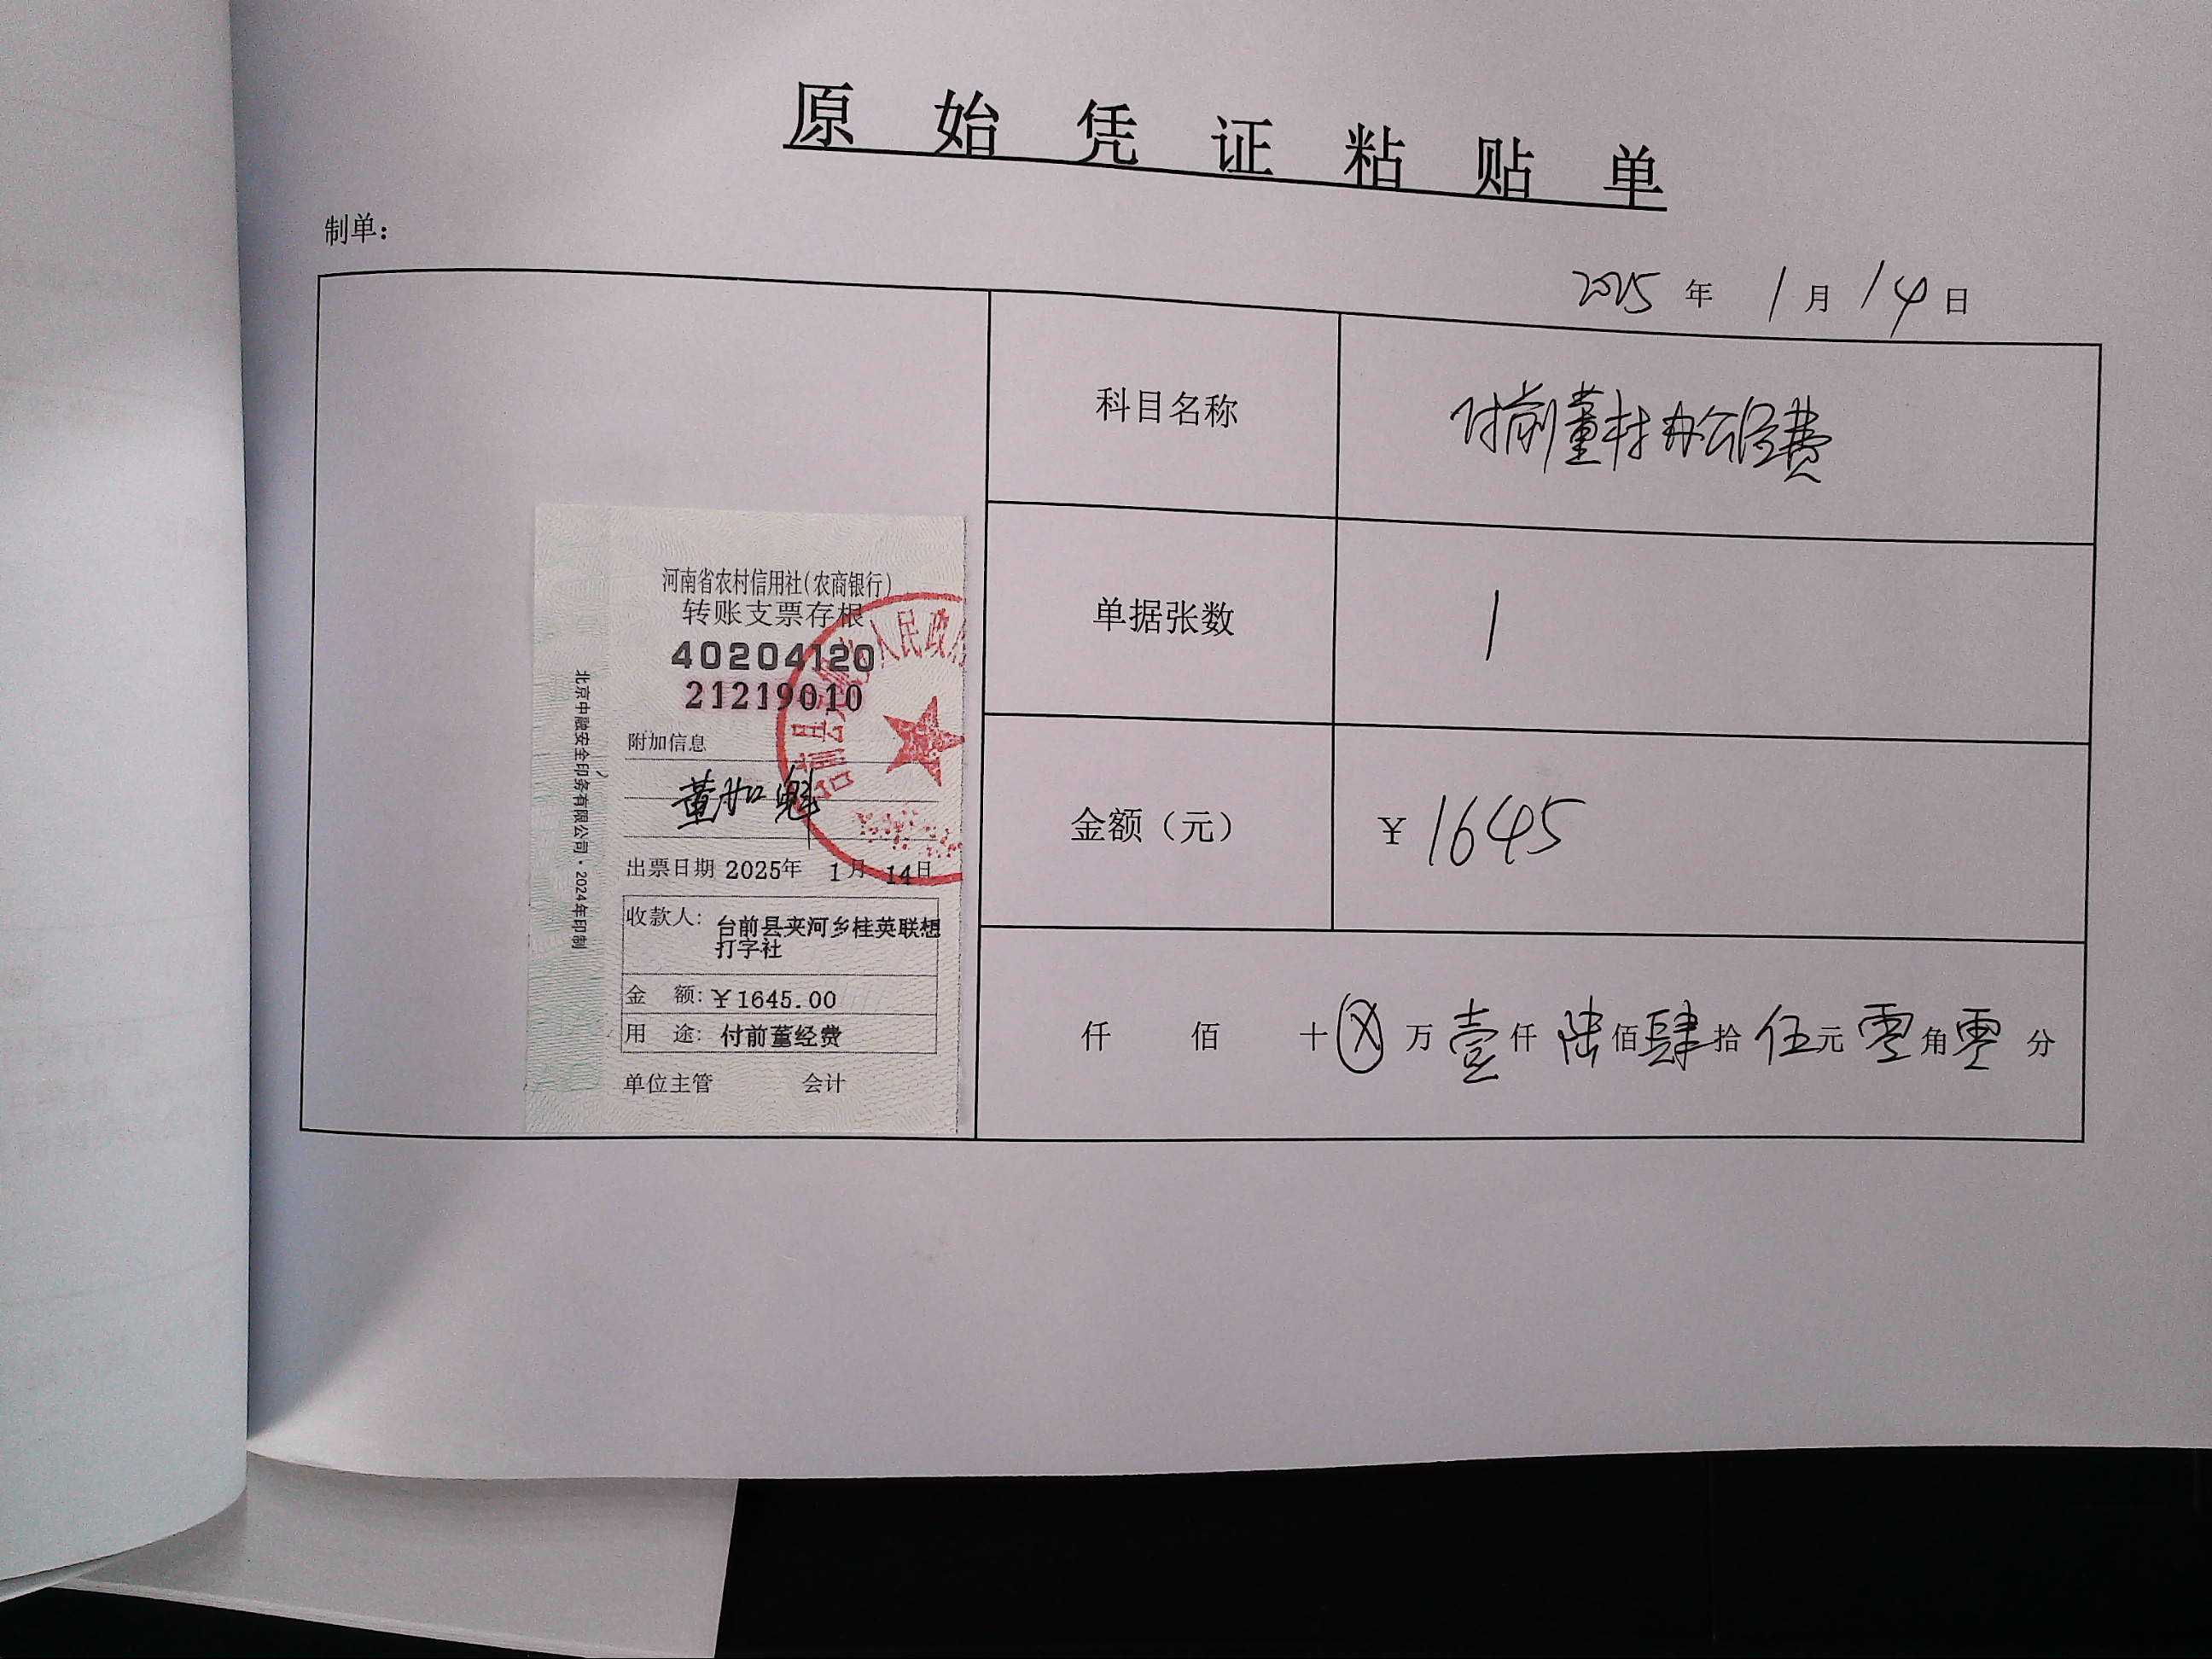 原始凭证粘贴单
制单：
2025年1月14日
河南省农村信用社（农商银行）
转账支票存根
40204120
21219010
附加信息
董加魁
出票日期 2025年 1月 14日
收款人：台前县夹河乡桂英联想
打字社
金 额：￥1645.00
用 途：付前董经费
单位主管 会计
北京中融安全印务有限公司·2024年印制
人民政府
科目名称 付前董村办公经费
单据张数 1
金额（元） ￥1645
仟 佰 十ⓧ万壹仟陆佰肆拾伍元零角零分